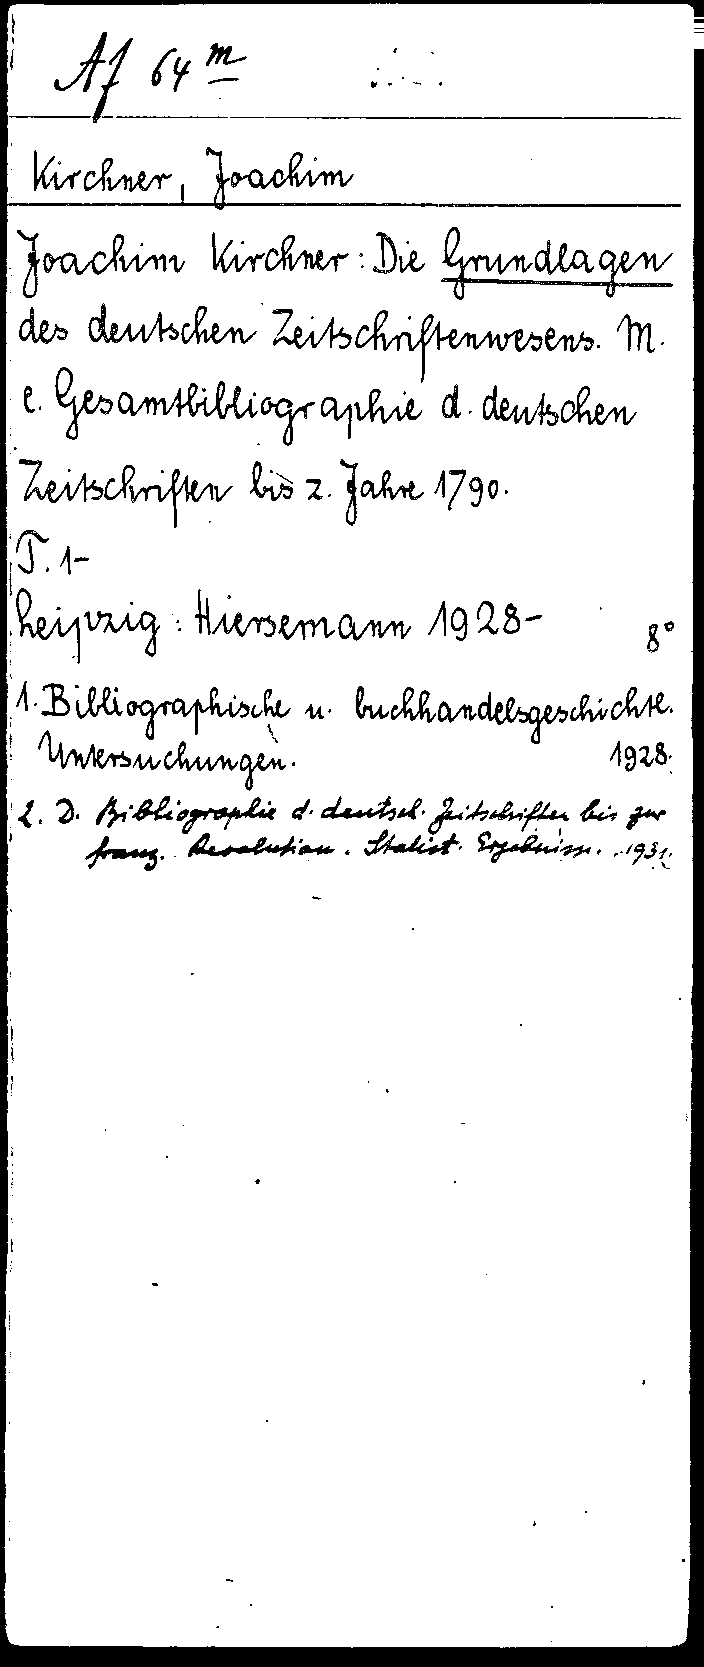 Af 64 m
Kirchner, Joachim
Joachim Kirchner: Die Grundlagen
des deutschen Zeitschriftenwesens. M.
e. Gesamtbibliographie d. deutschen
Zeitschriften bis z. Jahre 1790.
T. 1-
Leipzig: Hiersemann 1928- 8°
1. Bibliographische u. buchhandelsgeschichtl.
Untersuchungen. 1928.
2. D. Bibliographie d. deutsch. Zeitschriften bis zur
franz. Revolution. Statist. Ergebnisse. 1931.